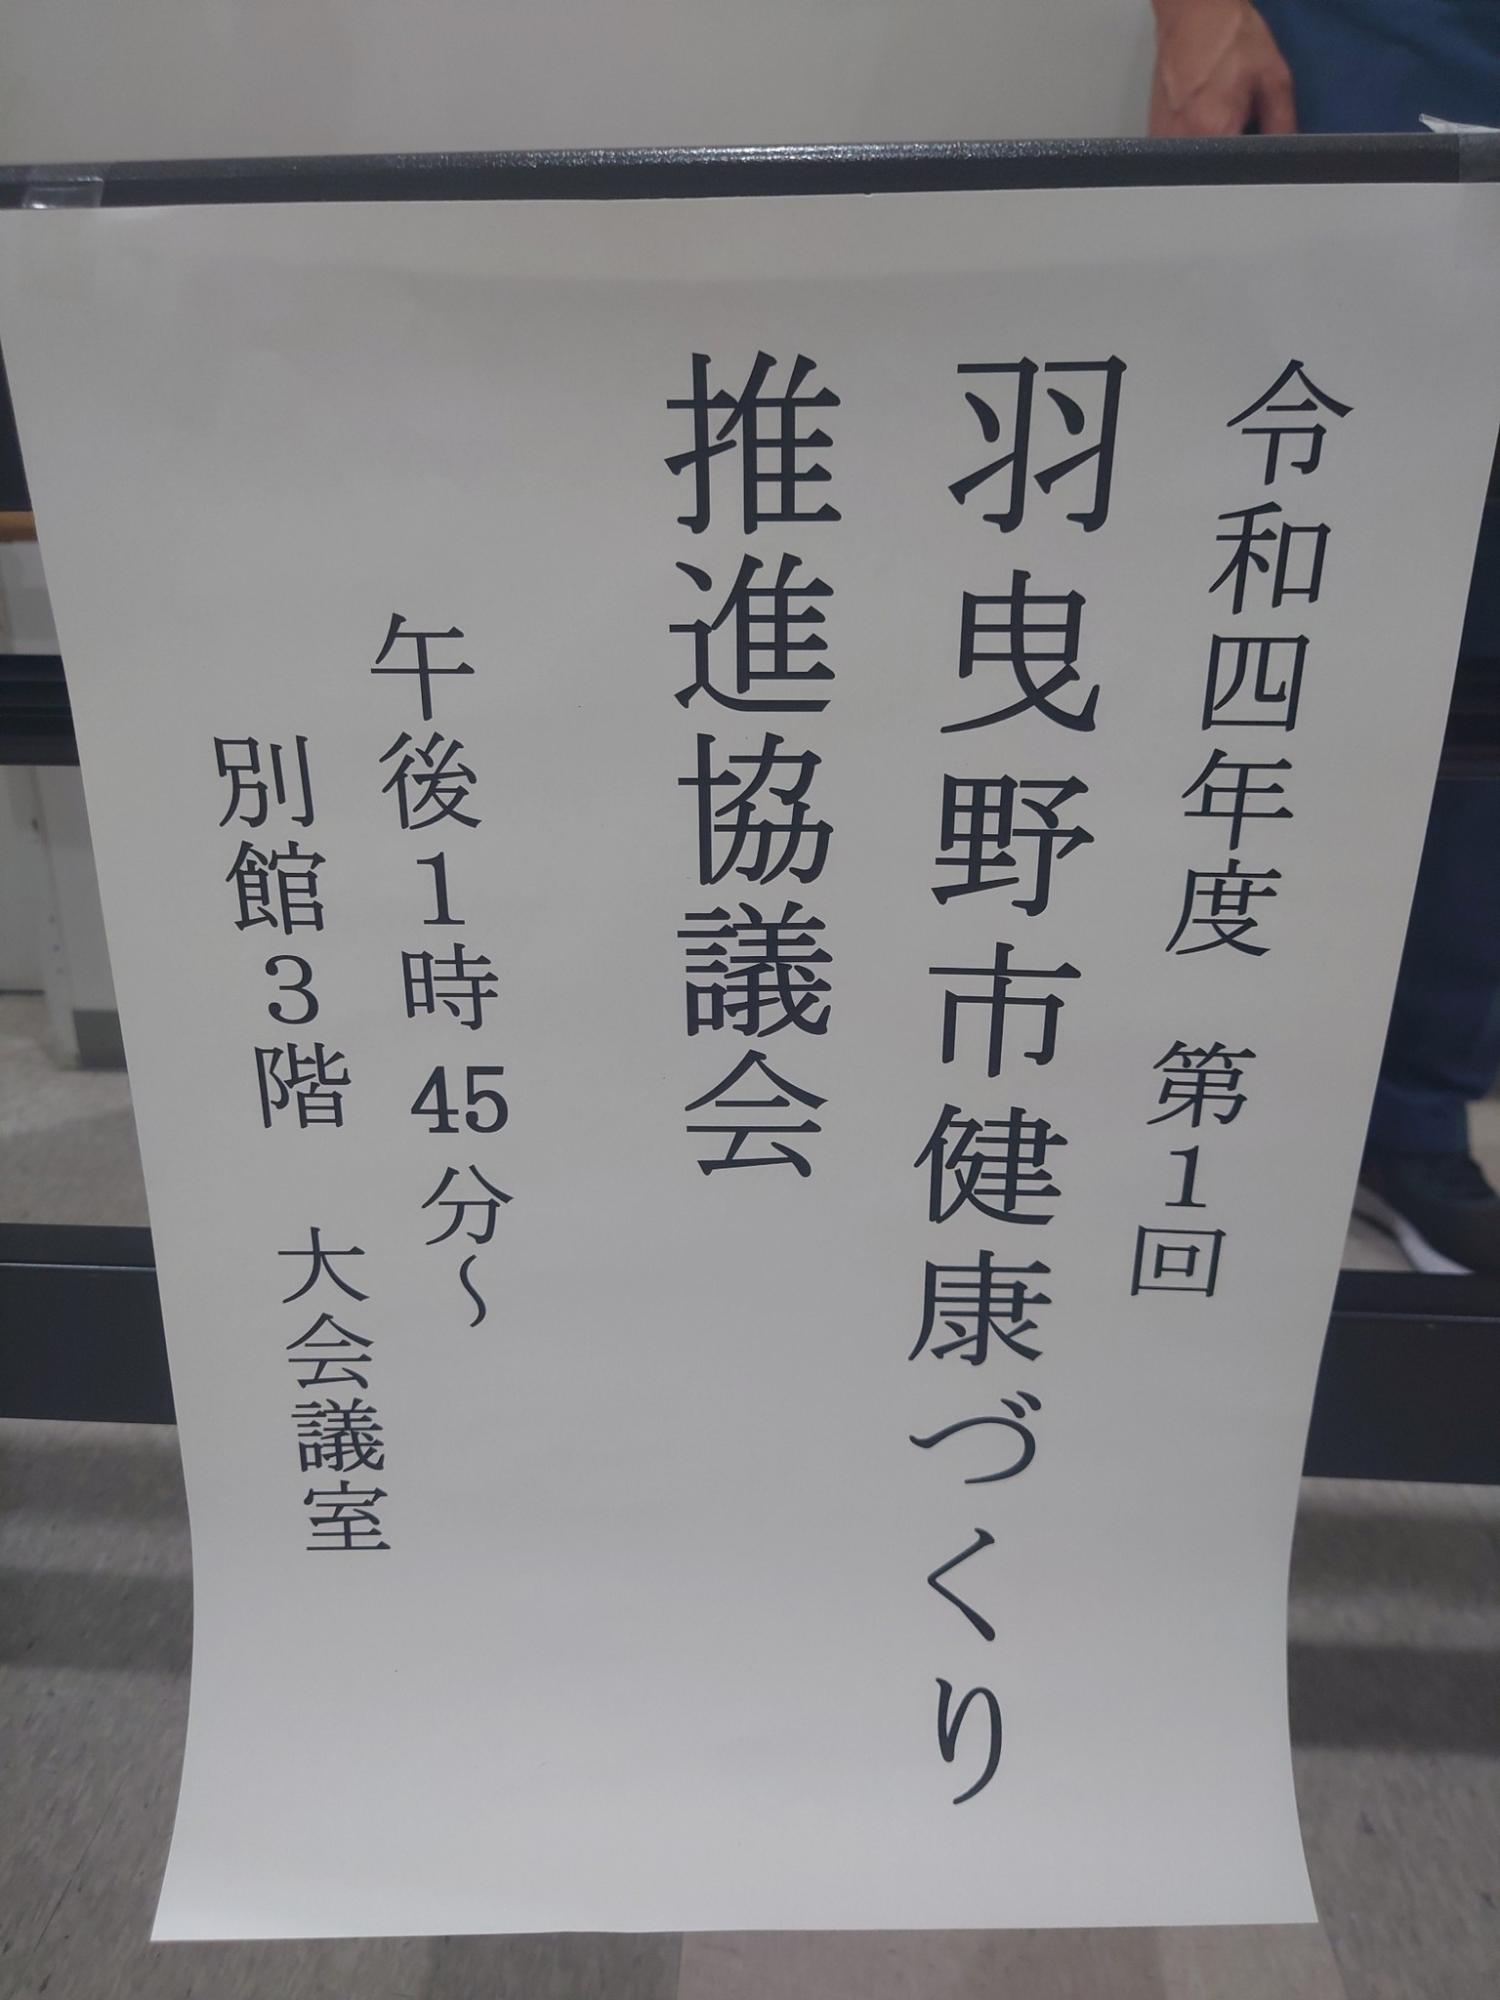 令和四年度　第１回
羽曳野市健康づくり
推進協議会
午後１時45分～
別館３階　大会議室